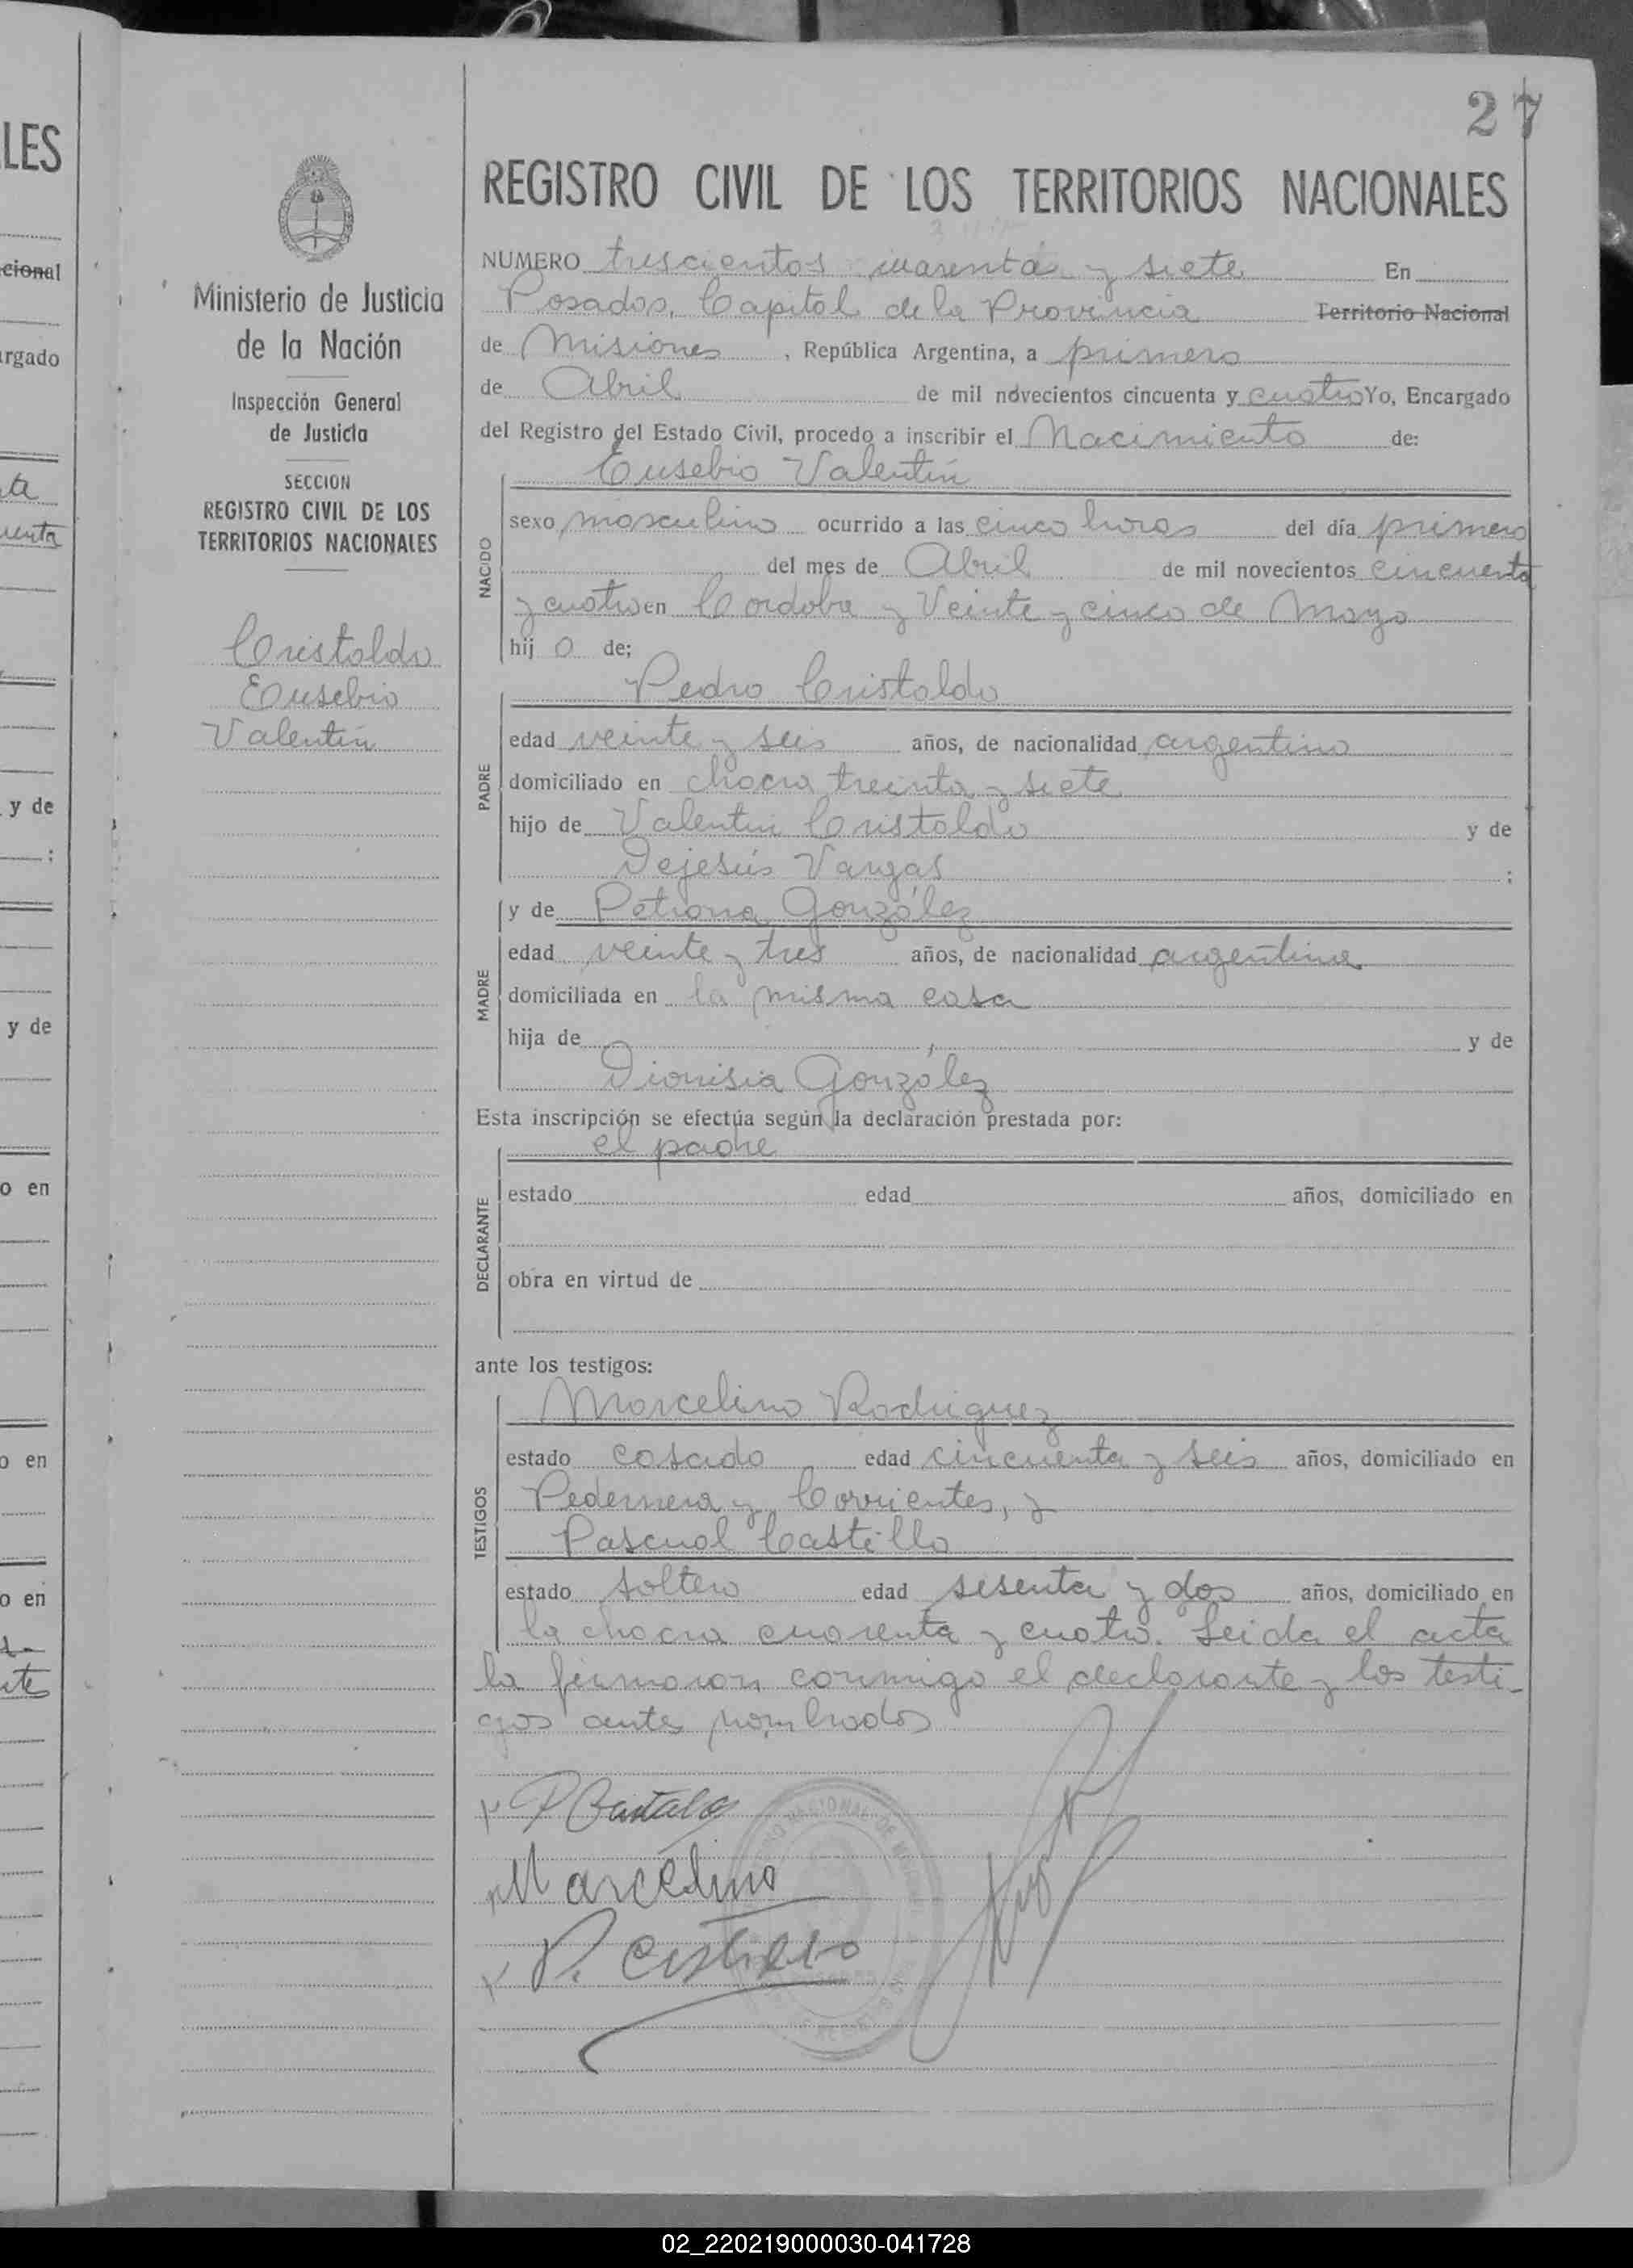 27
REGISTRO CIVIL DE LOS TERRITORIOS NACIONALES
NUMERO trescientos cuarenta y siete En
Posadas, Capital de la Provincia Territorio Nacional
de Misiones, República Argentina, a primero
de Abril de mil novecientos cincuenta y cuatro Yo, Encargado
del Registro del Estado Civil, procedo a inscribir el Nacimiento de:
NACIDO
Eusebio Valentín
sexo masculino ocurrido a las cinco horas del día primero
del mes de Abril de mil novecientos cincuenta
y cuatro en Cordoba y Veinte y cinco de Mayo
hij o de;
PADRE
Pedro Cristaldo
edad veinte y seis años, de nacionalidad argentino
domiciliado en chacra treinta y siete
hijo de Valentin Cristaldo y de
Dejesús Vargas ;
MADRE
y de Petrona González
edad veinte y tres años, de nacionalidad argentina
domiciliada en la misma casa
hija de , y de
Dionisia González
Esta inscripción se efectúa según la declaración prestada por:
DECLARANTE
el padre
estado edad años, domiciliado en
obra en virtud de
ante los testigos:
TESTIGOS
Marcelino Rodriguez
estado casado edad cincuenta y seis años, domiciliado en
Pedernera y Corrientes, y
Pascual Castillo
estado soltero edad sesenta y dos años, domiciliado en
la chacra cuarenta y cuatro. Leida el acta
la firmaron conmigo el declarante y los testi-
gos antes nombrados
Marcelino
P. Castillo
Ministerio de Justicia
de la Nación
Inspección General
de Justicia
SECCION
REGISTRO CIVIL DE LOS
TERRITORIOS NACIONALES
Cristaldo
Eusebio
Valentín
LES
cional
rgado
ta
uenta
y de
;
y de
o en
o en
o en
02_220219000030-041728